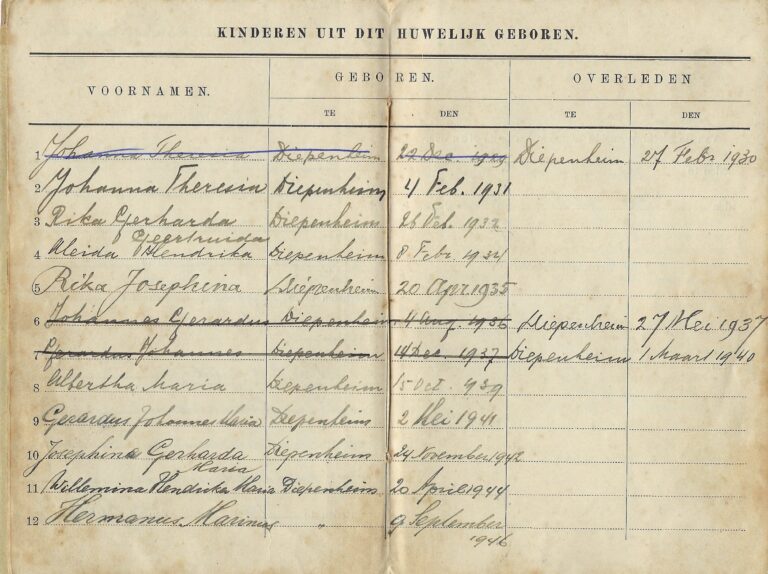 KINDEREN UIT DIT HUWELIJK GEBOREN.
VOORNAMEN. GEBOREN. OVERLEDEN
TE DEN TE DEN
1 Johanna Theresia Diepenheim 22 Dec 1929 Diepenheim 27 Febr 1930
2 Johanna Theresia Diepenheim 4 Feb. 1931
3 Rika Gerharda Diepenheim 26 Feb. 1932
Geertruida
4 Aleida Hendrika Diepenheim 8 Febr 1934
5 Rika Josephina Diepenheim 20 Apr 1935
6 Johannes Gerardus Diepenheim 14 Aug. 1936 Diepenheim 27 Mei 1937
7 Gerardus Johannes Diepenheim 14 Dec. 1937 Diepenheim 1 Maart 1940
8 Albertha Maria Diepenheim 15 Oct. 1939
9 Gerardus Johannes Maria Diepenheim 2 Mei 1941
10 Josephina Gerharda Diepenheim 24 November 1942
Maria
11 Willemina Hendrika Maria Diepenheim 20 April 1944
12 Hermanus Marinus " 9 September
1946